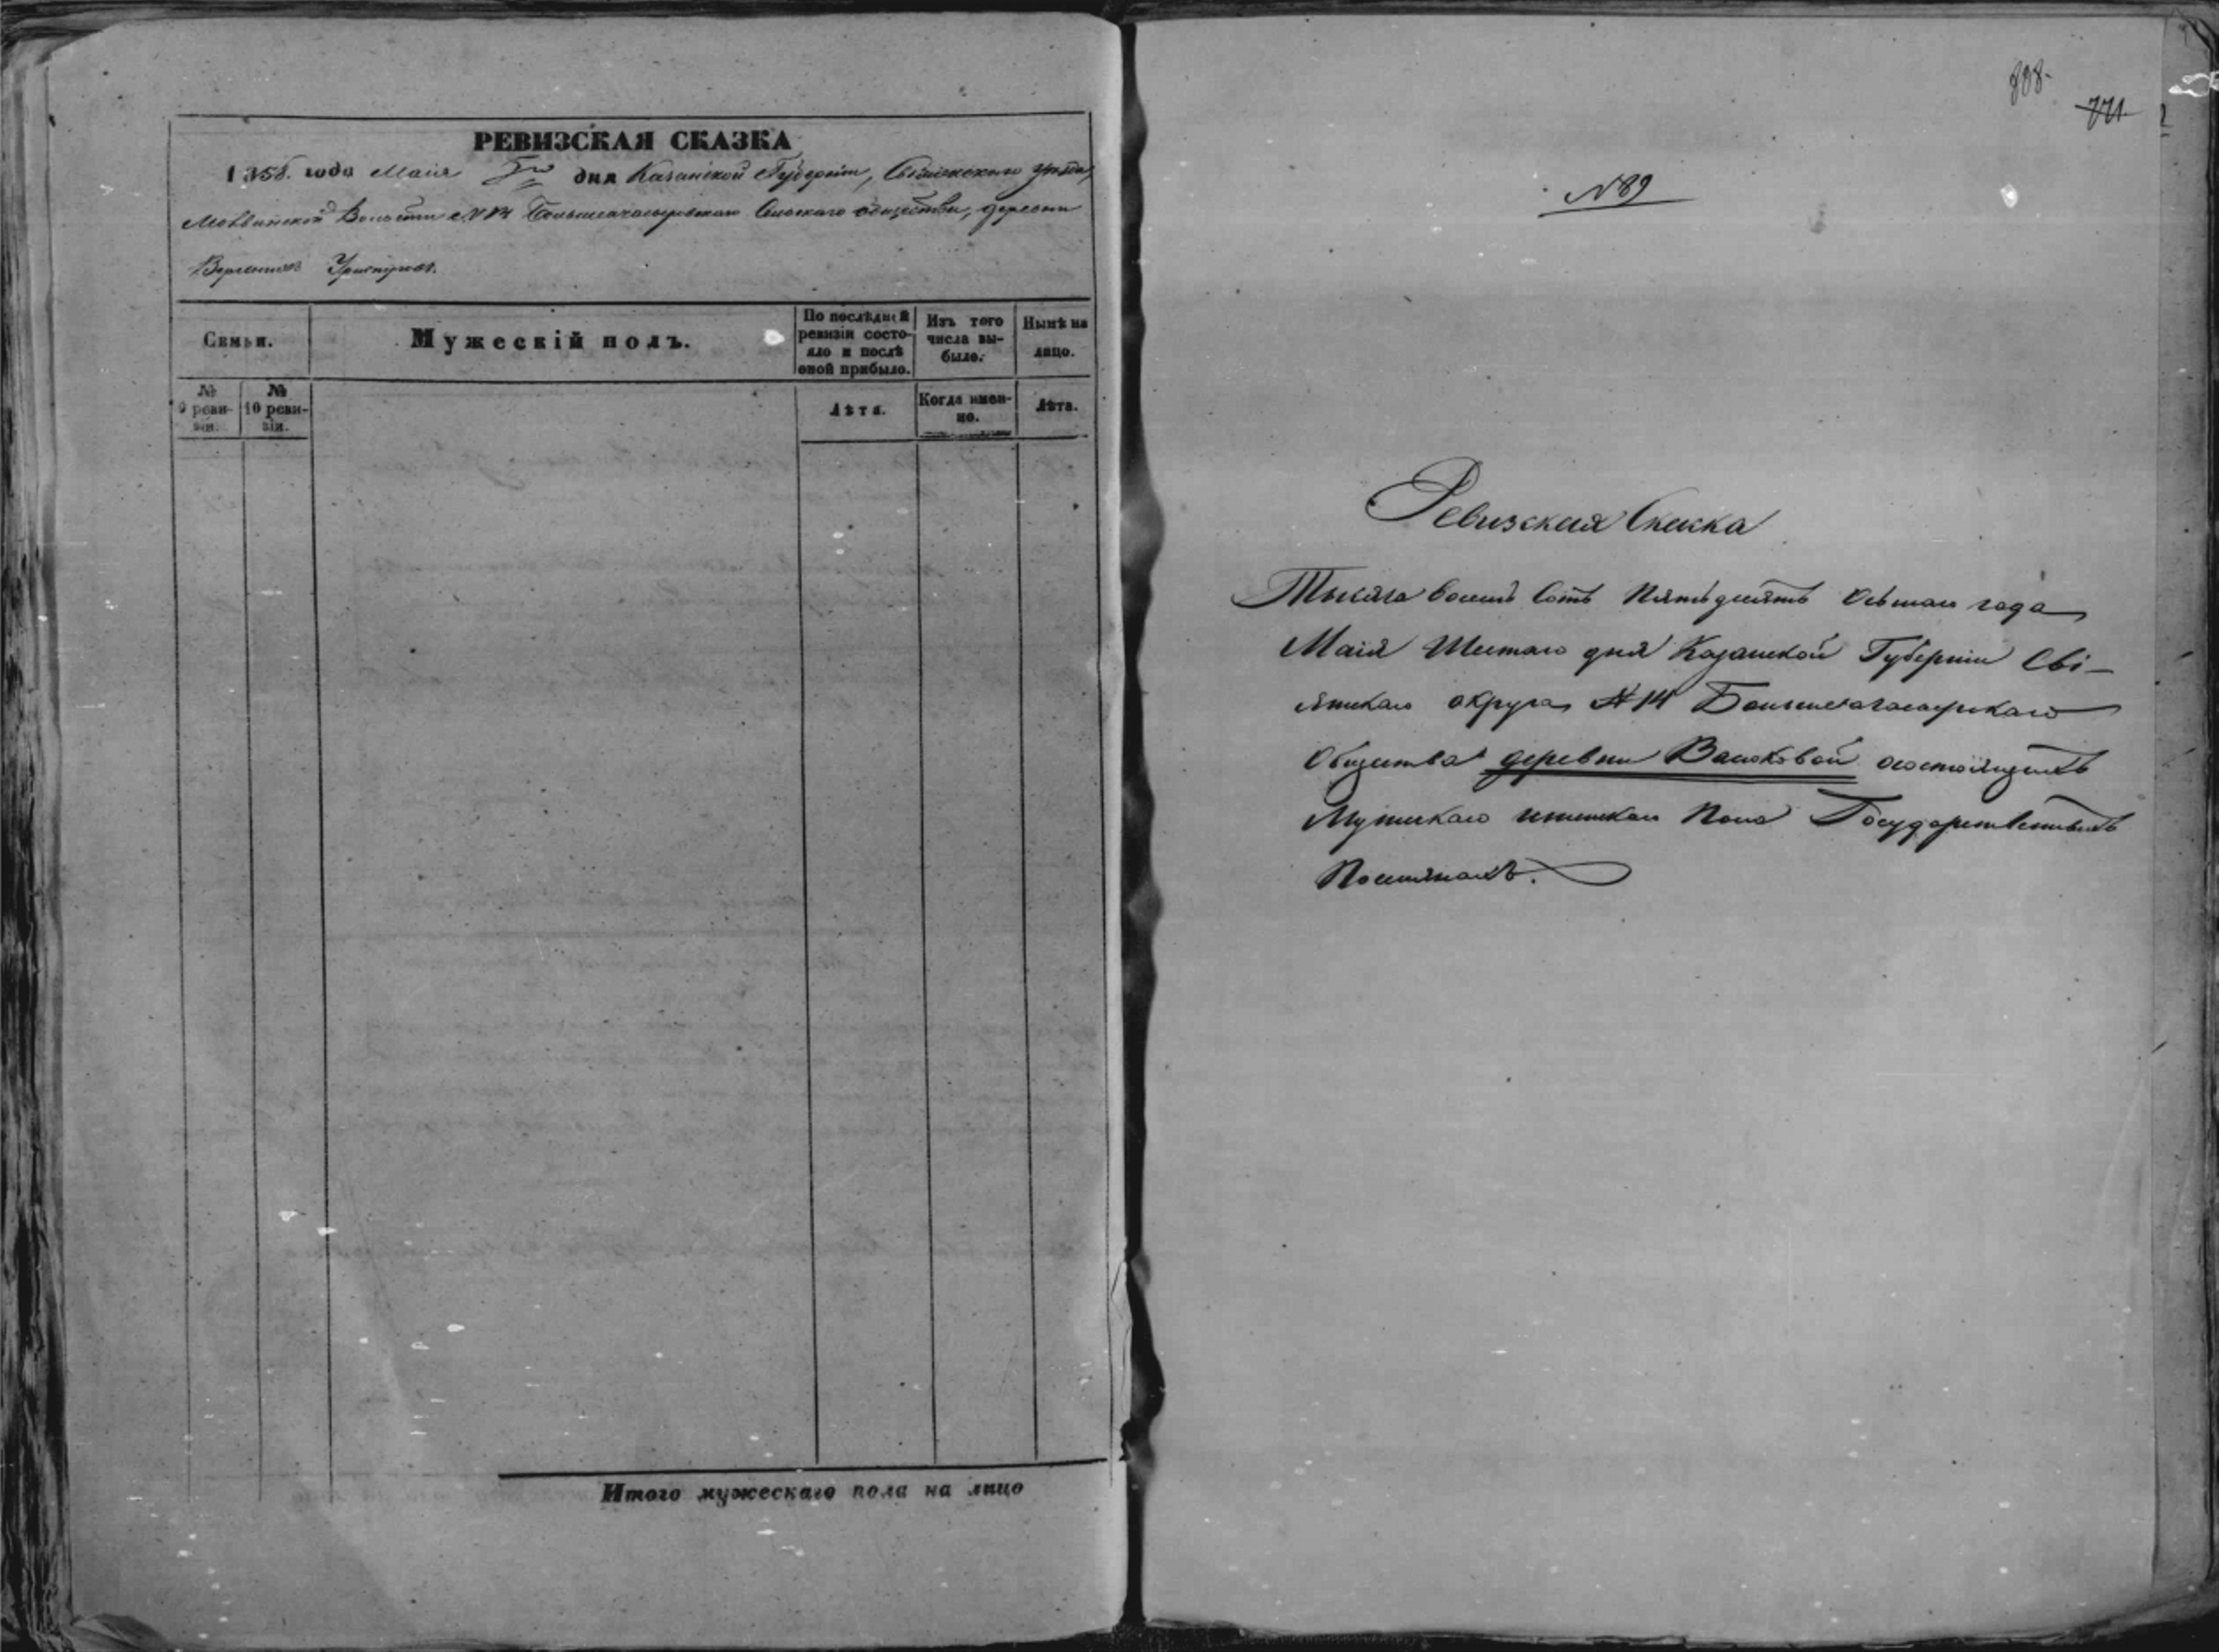 РЕВИЗСКАЯ СКАЗКА
1858. года Маія 5го дня Казанской Губерніи, Свіяжскаго уѣзда,
Волости № 14 Сельскаго общества, деревни
Семьи.
Мужескій полъ.
По послѣдней ревизіи состояло и послѣ оной прибыло.
Изъ того числа выбыло.
Нынѣ на лицо.
№ 9 ревизіи.
№ 10 ревизіи.
Лѣта.
Когда именно.
Лѣта.
Итого мужескаго пола на лицо
808.
771.
№ 89
Ревизская Скаска
Тысяча восемь Сотъ Пятьдесятъ Осьмаго года
Маія Шестаго дня Казанской Губерніи Сві-
яжскаго округа № 14
Общества деревни Васюковой о состоящихъ
Мужескаго и женскаго Пола Государственныхъ
Поселянахъ.